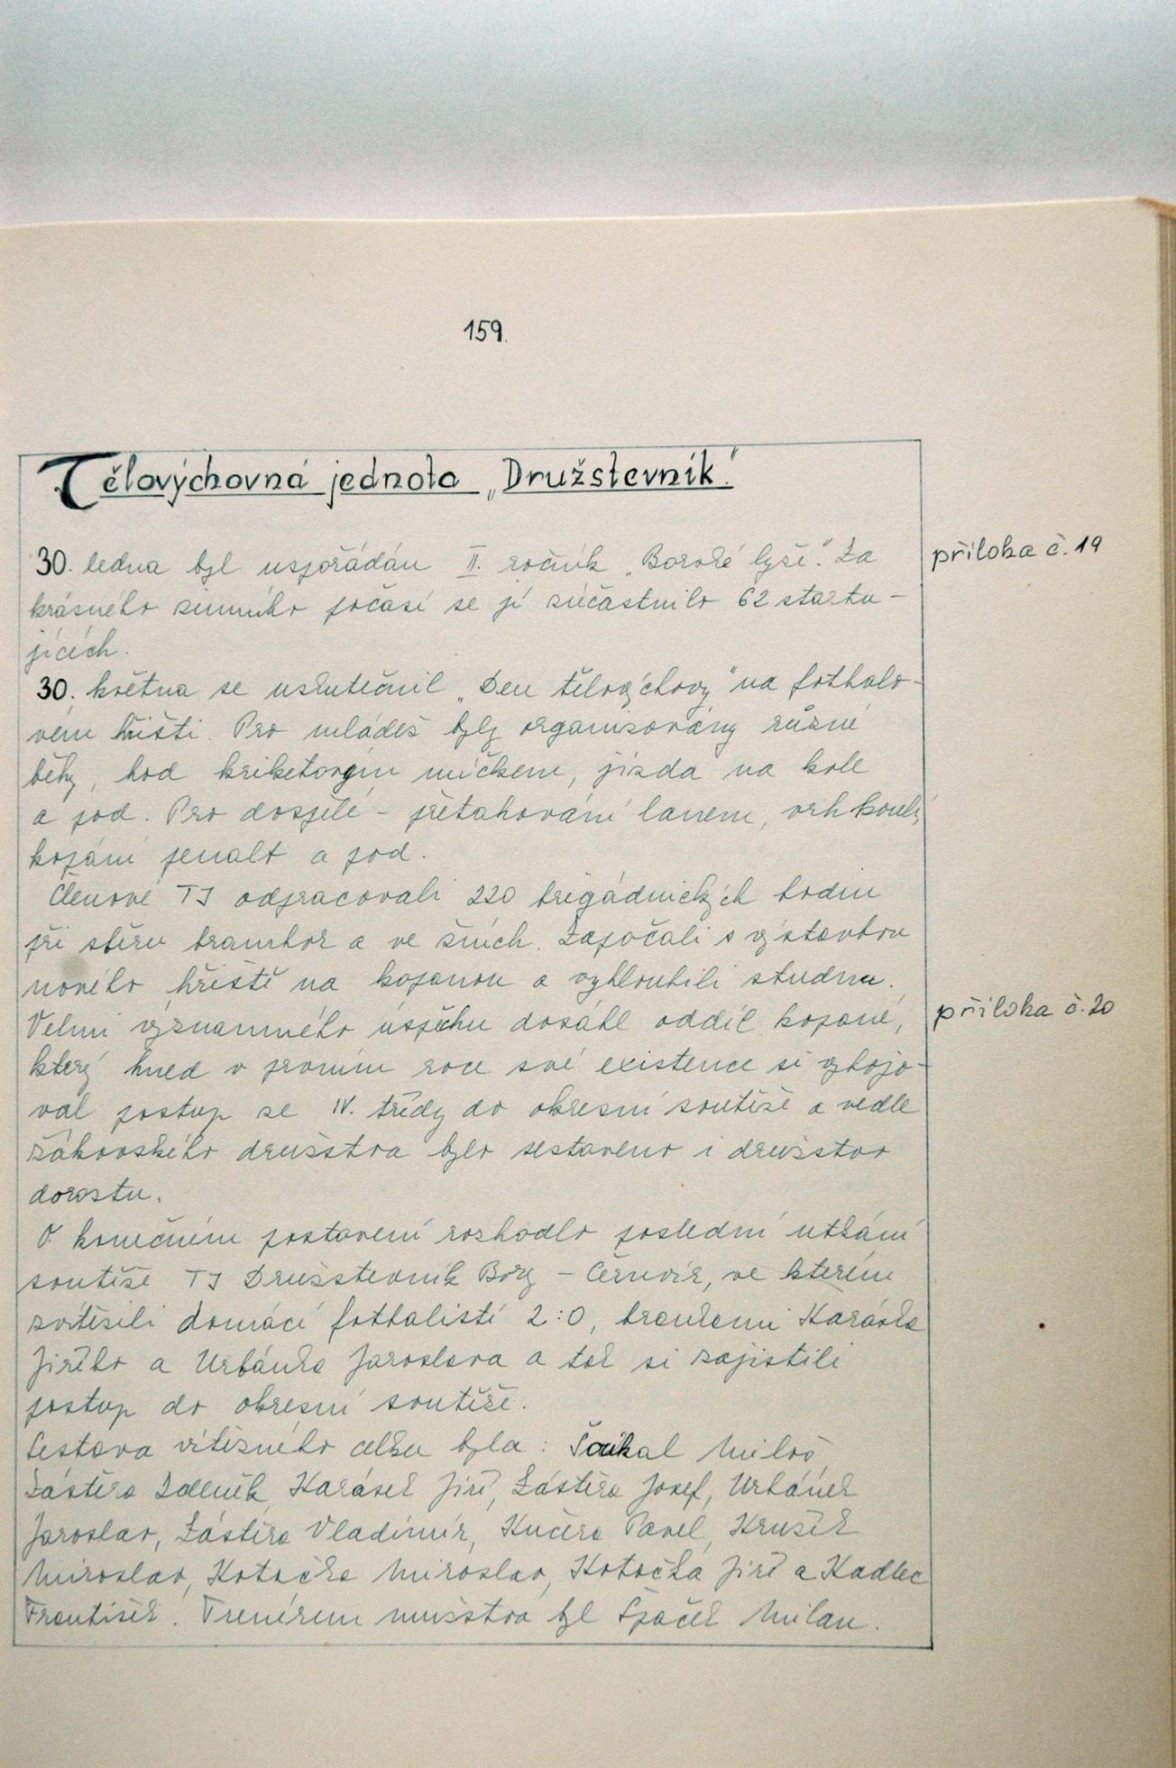 159.
Tělovýchovná jednota „Družstevník“
30. ledna byl uspořádán II. ročník „Borské lyže“. Za
příloha č. 19
krásného zimního počasí se jí zúčastnilo 62 startu-
jících.
30. května se uskutečnil „Den tělovýchovy“ na fotbalo-
vém hřišti. Pro mládež byly organizovány různé
běhy, hod kriketovým míčkem, jízda na kole
a pod. Pro dospělé - přetahování lanem, vrh koulí,
kopání penalt a pod.
Členové TJ odpracovali 220 brigádnických hodin
při sběru brambor a ve žních. Započali s výstavbou
nového hřiště na kopanou a vyhloubili studnu.
Velmi významného úspěchu dosáhl oddíl kopané,
příloha č. 20
který hned v prvním roce své existence si vybojo-
val postup ze IV. třídy do okresní soutěže a vedle
žákovského družstva bylo sestaveno i družstvo
dorostu.
O konečném postavení rozhodlo poslední utkání
soutěže TJ Družstevník Bory - Černvír, ve kterém
zvítězili domácí fotbalisté 2:0, brankami Karáska
Jiřího a Urbánka Jaroslava a tak si zajistili
postup do okresní soutěže.
Sestava vítězného celku byla: Šoukal Miloš,
Zástěra Zdeněk, Karásek Jiří, Zástěra Josef, Urbánek
Jaroslav, Zástěra Vladimír, Kučera Pavel, Krušek
Miroslav, Kotačka Miroslav, Kotačka Jiří a Kadlec
František. Trenérem mužstva byl Špaček Milan.